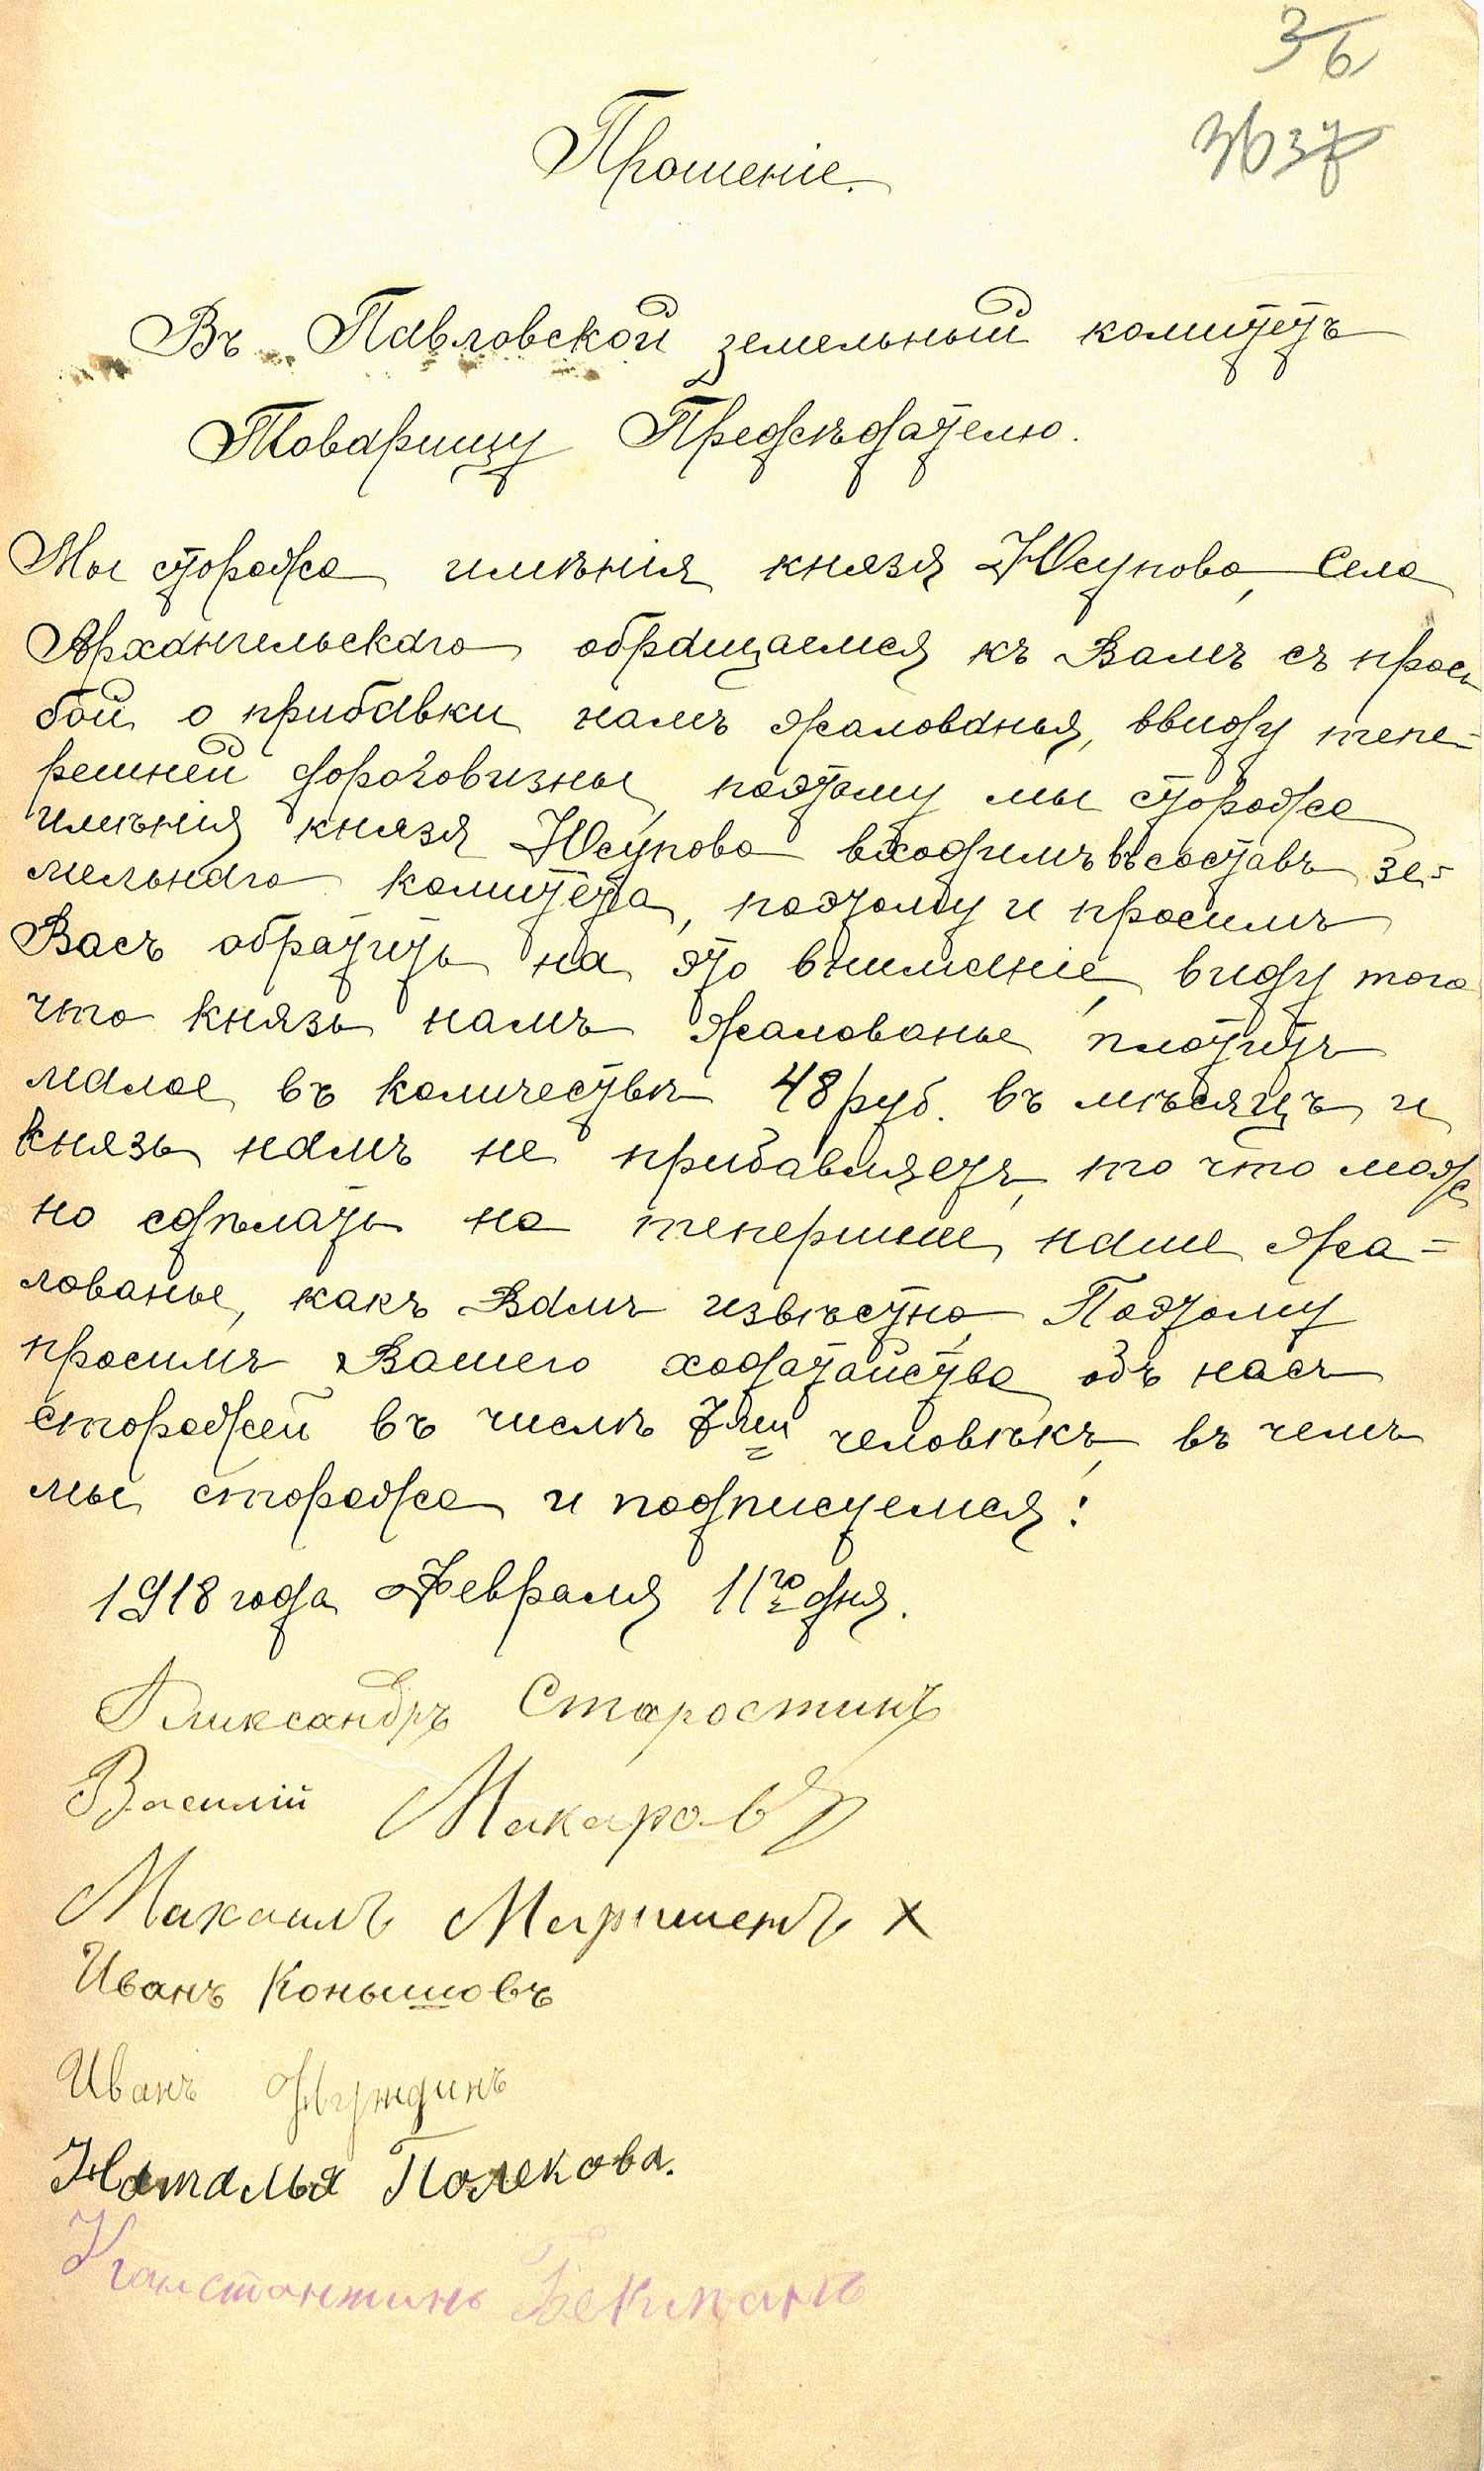 36
36 37
Прошеніе.
Въ Павловской земельный комитетъ
Товарищу Предсѣдателю.
Мы сторожа имѣнія князя Юсупова, Села
Архангельскаго обращаемся къ Вамъ съ прось
бой о прибавки намъ жалованья, ввиду тепе-
решней дороговизны, поэтому мы сторожа
имѣнія князя Юсупова входимъ въ составъ зе-
мельнаго комитета, поэтому и просимъ
Васъ обратить на это вниманіе, виду того
что князь намъ жалованье платитъ
малое въ количествѣ 48 руб. въ мѣсяцъ и
князь намъ не прибавляетъ, то что мож
но сдѣлать на теперишне наше жа-
лованье, какъ Вамъ извѣстно, Поэтому
просимъ Вашего ходатайства объ насъ
сторожей въ числѣ 7ми человѣкъ, въ чемъ
мы сторожа и подписуемся:
1918 года Февраля 11го дня.
Аликсандръ Старостинъ
Василій Макаровъ
Михаилъ X
Иванъ Конышовъ
Иванъ Нуждинъ
Наталья Полекова.
Констонтинъ Бекманъ